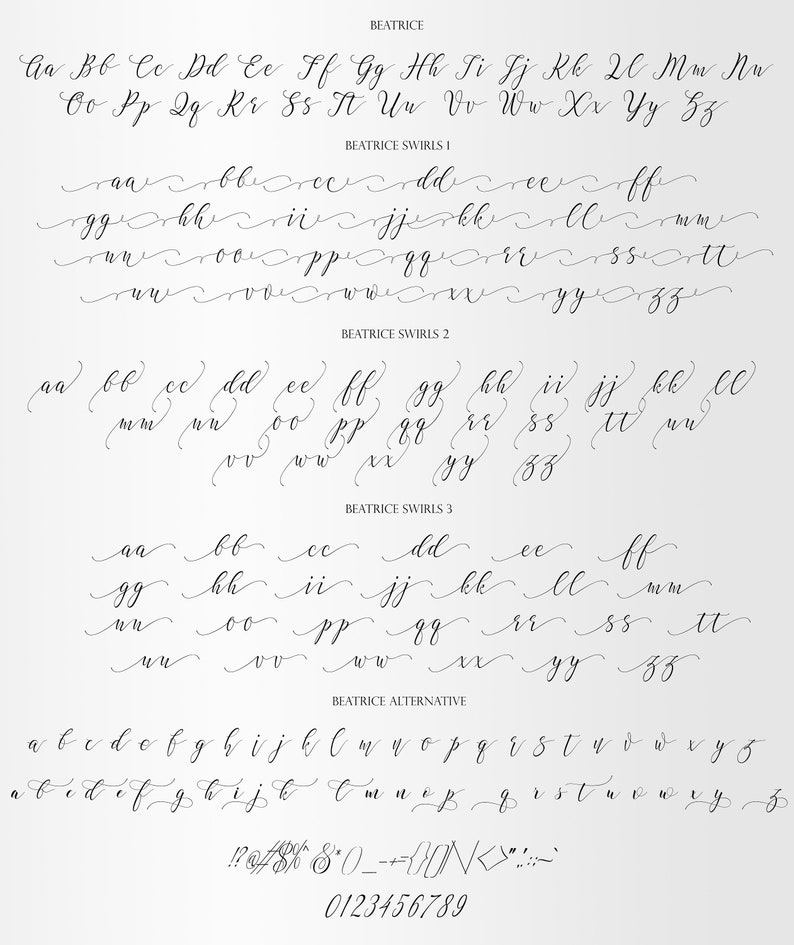 BEATRICE
Aa Bb Cc Dd Ee Ff Gg Hh Ii Jj Kk Ll Mm Nn
Oo Pp Qq Rr Ss Tt Uu Vv Ww Xx Yy Zz
BEATRICE SWIRLS 1
aa bb cc dd ee ff
gg hh ii jj kk ll mm
nn oo pp qq rr ss tt
uu vv ww xx yy zz
BEATRICE SWIRLS 2
aa bb cc dd ee ff gg hh ii jj kk ll
mm nn oo pp qq rr ss tt uu
vv ww xx yy zz
BEATRICE SWIRLS 3
aa bb cc dd ee ff
gg hh ii jj kk ll mm
nn oo pp qq rr ss tt
uu vv ww xx yy zz
BEATRICE ALTERNATIVE
a b c d e f g h i j k l m n o p q r s t u v w x y z
a b c d e f g h i j k l m n o p q r s t u v w x y z
!?@#$%^&*()_-+={}[]|\/<>"',.:;~`
0123456789